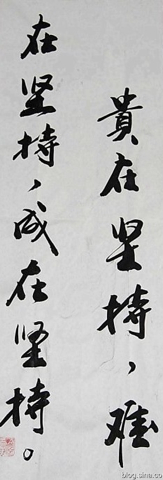 貴在坚持，难
在坚持，成在坚持。
blog.sina.co